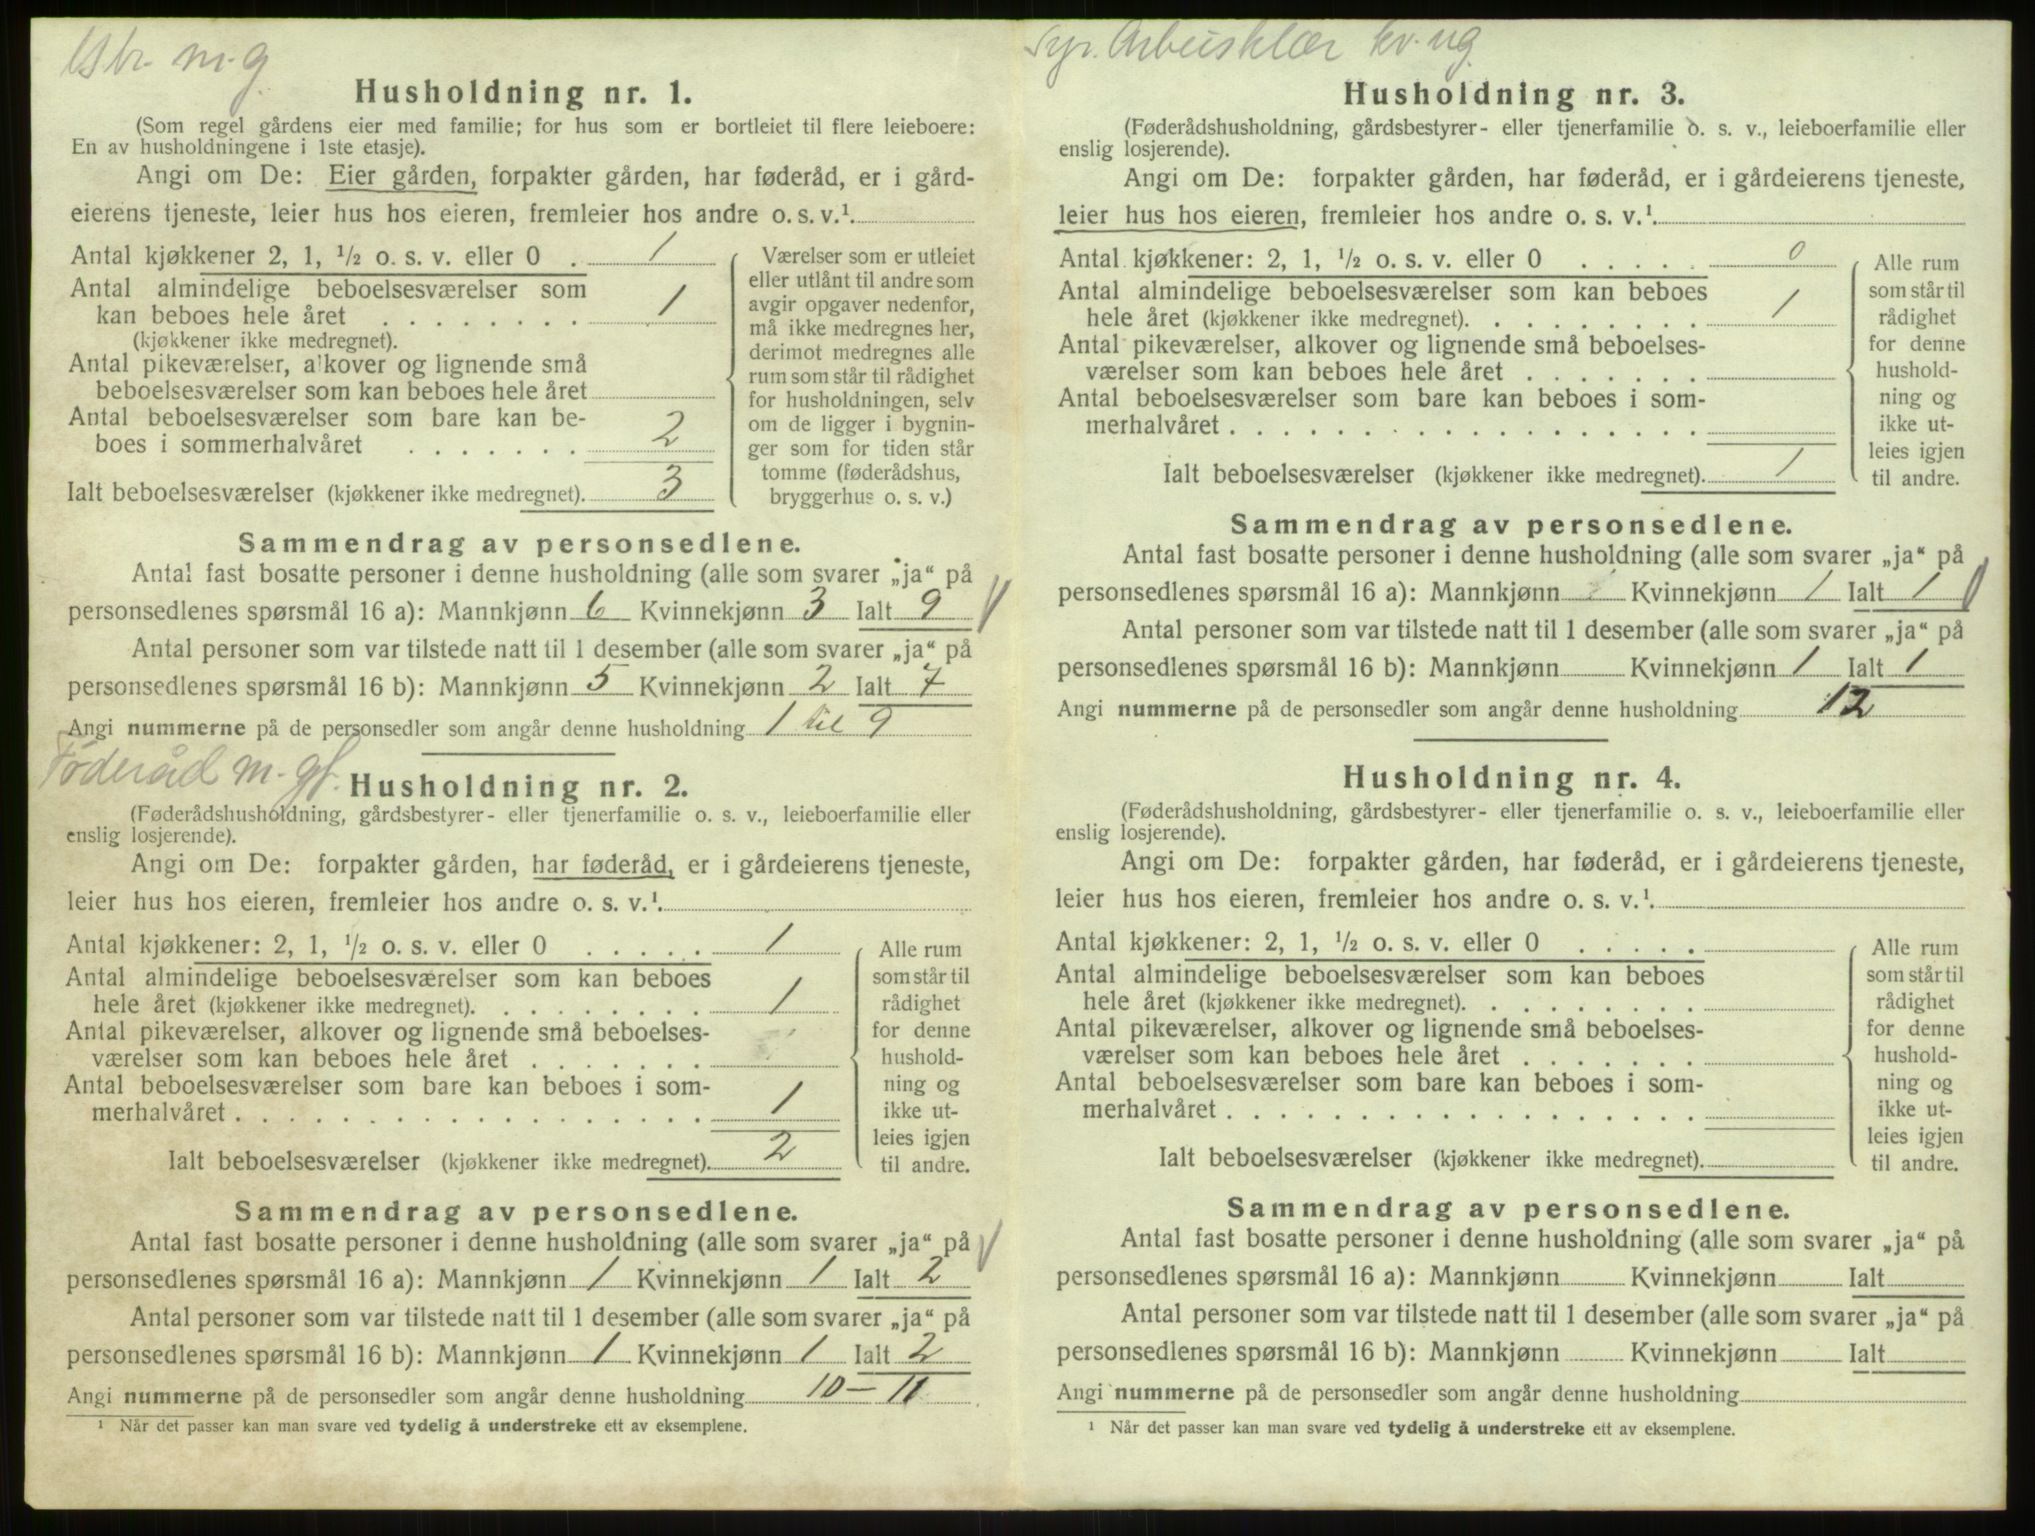 Gbr. m. g.
Husholdning nr. 1.
(Som regel gårdens eier med familie; for hus som er bortleiet til flere leieboere:
En av husholdningene i 1ste etasje).
Angi om De: Eier gården, forpakter gården, har føderåd, er i gård-
eierens tjeneste, leier hus hos eieren, fremleier hos andre o. s. v.¹
Antal kjøkkener 2, 1, ½ o. s. v. eller 0 . 1
Antal almindelige beboelsesværelser som
kan beboes hele året . . . . . . . . 1
(kjøkkener ikke medregnet).
Antal pikeværelser, alkover og lignende små
beboelsesværelser som kan beboes hele året
Antal beboelsesværelser som bare kan be-
boes i sommerhalvåret . . . . . . . 2
Ialt beboelsesværelser (kjøkkener ikke medregnet). 3
Værelser som er utleiet
eller utlånt til andre som
avgir opgaver nedenfor,
må ikke medregnes her,
derimot medregnes alle
rum som står til rådighet
for husholdningen, selv
om de ligger i bygnin-
ger som for tiden står
tomme (føderådshus,
bryggerhus o. s. v.)
Sammendrag av personsedlene.
Antal fast bosatte personer i denne husholdning (alle som svarer „ja“ på
personsedlenes spørsmål 16 a): Mannkjønn 6 Kvinnekjønn 3 Ialt 9
Antal personer som var tilstede natt til 1 desember (alle som svarer „ja“ på
personsedlenes spørsmål 16 b): Mannkjønn 5 Kvinnekjønn 2 Ialt 7
Angi nummerne på de personsedler som angår denne husholdning 1 til 9
Føderåd m. gf.
Husholdning nr. 2.
(Føderådshusholdning, gårdsbestyrer- eller tjenerfamilie o. s. v., leieboerfamilie eller
enslig losjerende).
Angi om De: forpakter gården, har føderåd, er i gårdeierens tjeneste,
leier hus hos eieren, fremleier hos andre o. s. v.¹
Antal kjøkkener: 2, 1, ½ o. s. v. eller 0 . . . . . 1
Antal almindelige beboelsesværelser som kan beboes
hele året (kjøkkener ikke medregnet). . . . . . . . . 1
Antal pikeværelser, alkover og lignende små beboelses-
værelser som kan beboes hele året . . . . . . .
Antal beboelsesværelser som bare kan beboes i som-
merhalvåret . . . . . . . . . . . . . . . . . . 1
Ialt beboelsesværelser (kjøkkener ikke medregnet). 2
Alle rum
som står til
rådighet
for denne
hushold-
ning og
ikke ut-
leies igjen
til andre.
Sammendrag av personsedlene.
Antal fast bosatte personer i denne husholdning (alle som svarer „ja“ på
personsedlenes spørsmål 16 a): Mannkjønn 1 Kvinnekjønn 1 Ialt 2
Antal personer som var tilstede natt til 1 desember (alle som svarer „ja“ på
personsedlenes spørsmål 16 b): Mannkjønn 1 Kvinnekjønn 1 Ialt 2
Angi nummerne på de personsedler som angår denne husholdning 10 – 11
¹ Når det passer kan man svare ved tydelig å understreke ett av eksemplene.
Syr. Arbeisklær kv. ug.
Husholdning nr. 3.
(Føderådshusholdning, gårdsbestyrer- eller tjenerfamilie o. s. v., leieboerfamilie eller
enslig losjerende).
Angi om De: forpakter gården, har føderåd, er i gårdeierens tjeneste,
leier hus hos eieren, fremleier hos andre o. s. v.¹
Antal kjøkkener: 2, 1, ½ o. s. v. eller 0 . . . . . 0
Antal almindelige beboelsesværelser som kan beboes
hele året (kjøkkener ikke medregnet). . . . . . . . . 1
Antal pikeværelser, alkover og lignende små beboelses-
værelser som kan beboes hele året . . . . . . .
Antal beboelsesværelser som bare kan beboes i som-
merhalvåret . . . . . . . . . . . . . . . . . .
Ialt beboelsesværelser (kjøkkener ikke medregnet). 1
Alle rum
som står til
rådighet
for denne
hushold-
ning og
ikke ut-
leies igjen
til andre.
Sammendrag av personsedlene.
Antal fast bosatte personer i denne husholdning (alle som svarer „ja“ på
personsedlenes spørsmål 16 a): Mannkjønn Kvinnekjønn 1 Ialt 1
Antal personer som var tilstede natt til 1 desember (alle som svarer „ja“ på
personsedlenes spørsmål 16 b): Mannkjønn Kvinnekjønn 1 Ialt 1
Angi nummerne på de personsedler som angår denne husholdning 12
Husholdning nr. 4.
(Føderådshusholdning, gårdsbestyrer- eller tjenerfamilie o. s. v., leieboerfamilie eller
enslig losjerende).
Angi om De: forpakter gården, har føderåd, er i gårdeierens tjeneste,
leier hus hos eieren, fremleier hos andre o. s. v.¹
Antal kjøkkener: 2, 1, ½ o. s. v. eller 0 . . . . .
Antal almindelige beboelsesværelser som kan beboes
hele året (kjøkkener ikke medregnet). . . . . . . . .
Antal pikeværelser, alkover og lignende små beboelses-
værelser som kan beboes hele året . . . . . . .
Antal beboelsesværelser som bare kan beboes i som-
merhalvåret . . . . . . . . . . . . . . . . . .
Ialt beboelsesværelser (kjøkkener ikke medregnet).
Alle rum
som står til
rådighet
for denne
hushold-
ning og
ikke ut-
leies igjen
til andre.
Sammendrag av personsedlene.
Antal fast bosatte personer i denne husholdning (alle som svarer „ja“ på
personsedlenes spørsmål 16 a): Mannkjønn Kvinnekjønn Ialt
Antal personer som var tilstede natt til 1 desember (alle som svarer „ja“ på
personsedlenes spørsmål 16 b): Mannkjønn Kvinnekjønn Ialt
Angi nummerne på de personsedler som angår denne husholdning
¹ Når det passer kan man svare ved tydelig å understreke ett av eksemplene.